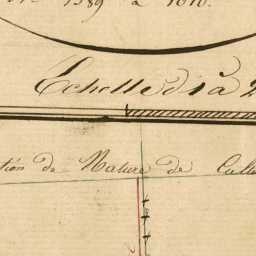 1589 à 1610.
Echelle de 1 à 2
tion de Nature de Cultu